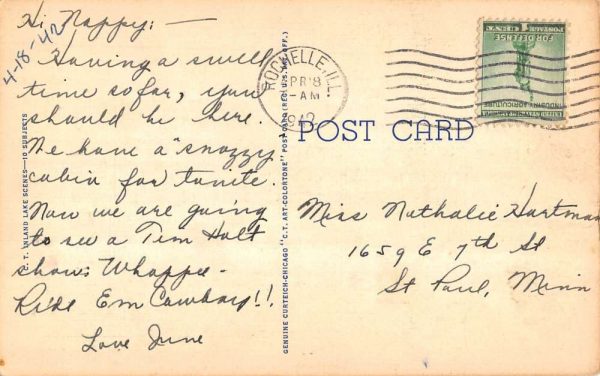 Hi Nappy: —
4-18-42
Having a swell
time so far, you
should be here.
We have a "snazzy
cabin for tonite.
Now we are going
to see a Tim Holt
show: Whoppe-
Ride Em Cowboy!!
Love June
C. T. INLAND LAKE SCENES—10 SUBJECTS
GENUINE CURTEICH-CHICAGO "C.T. ART-COLORTONE" POST CARD (REG. U.S. PAT. OFF.)
ROCHELLE, ILL.
APR 18
-AM
1942
POST CARD
1
POSTAGE
FOR DEFENSE
INDUSTRY AGRICULTURE
Miss Nathalie Hartman
1659 E 7th St
St Paul, Minn